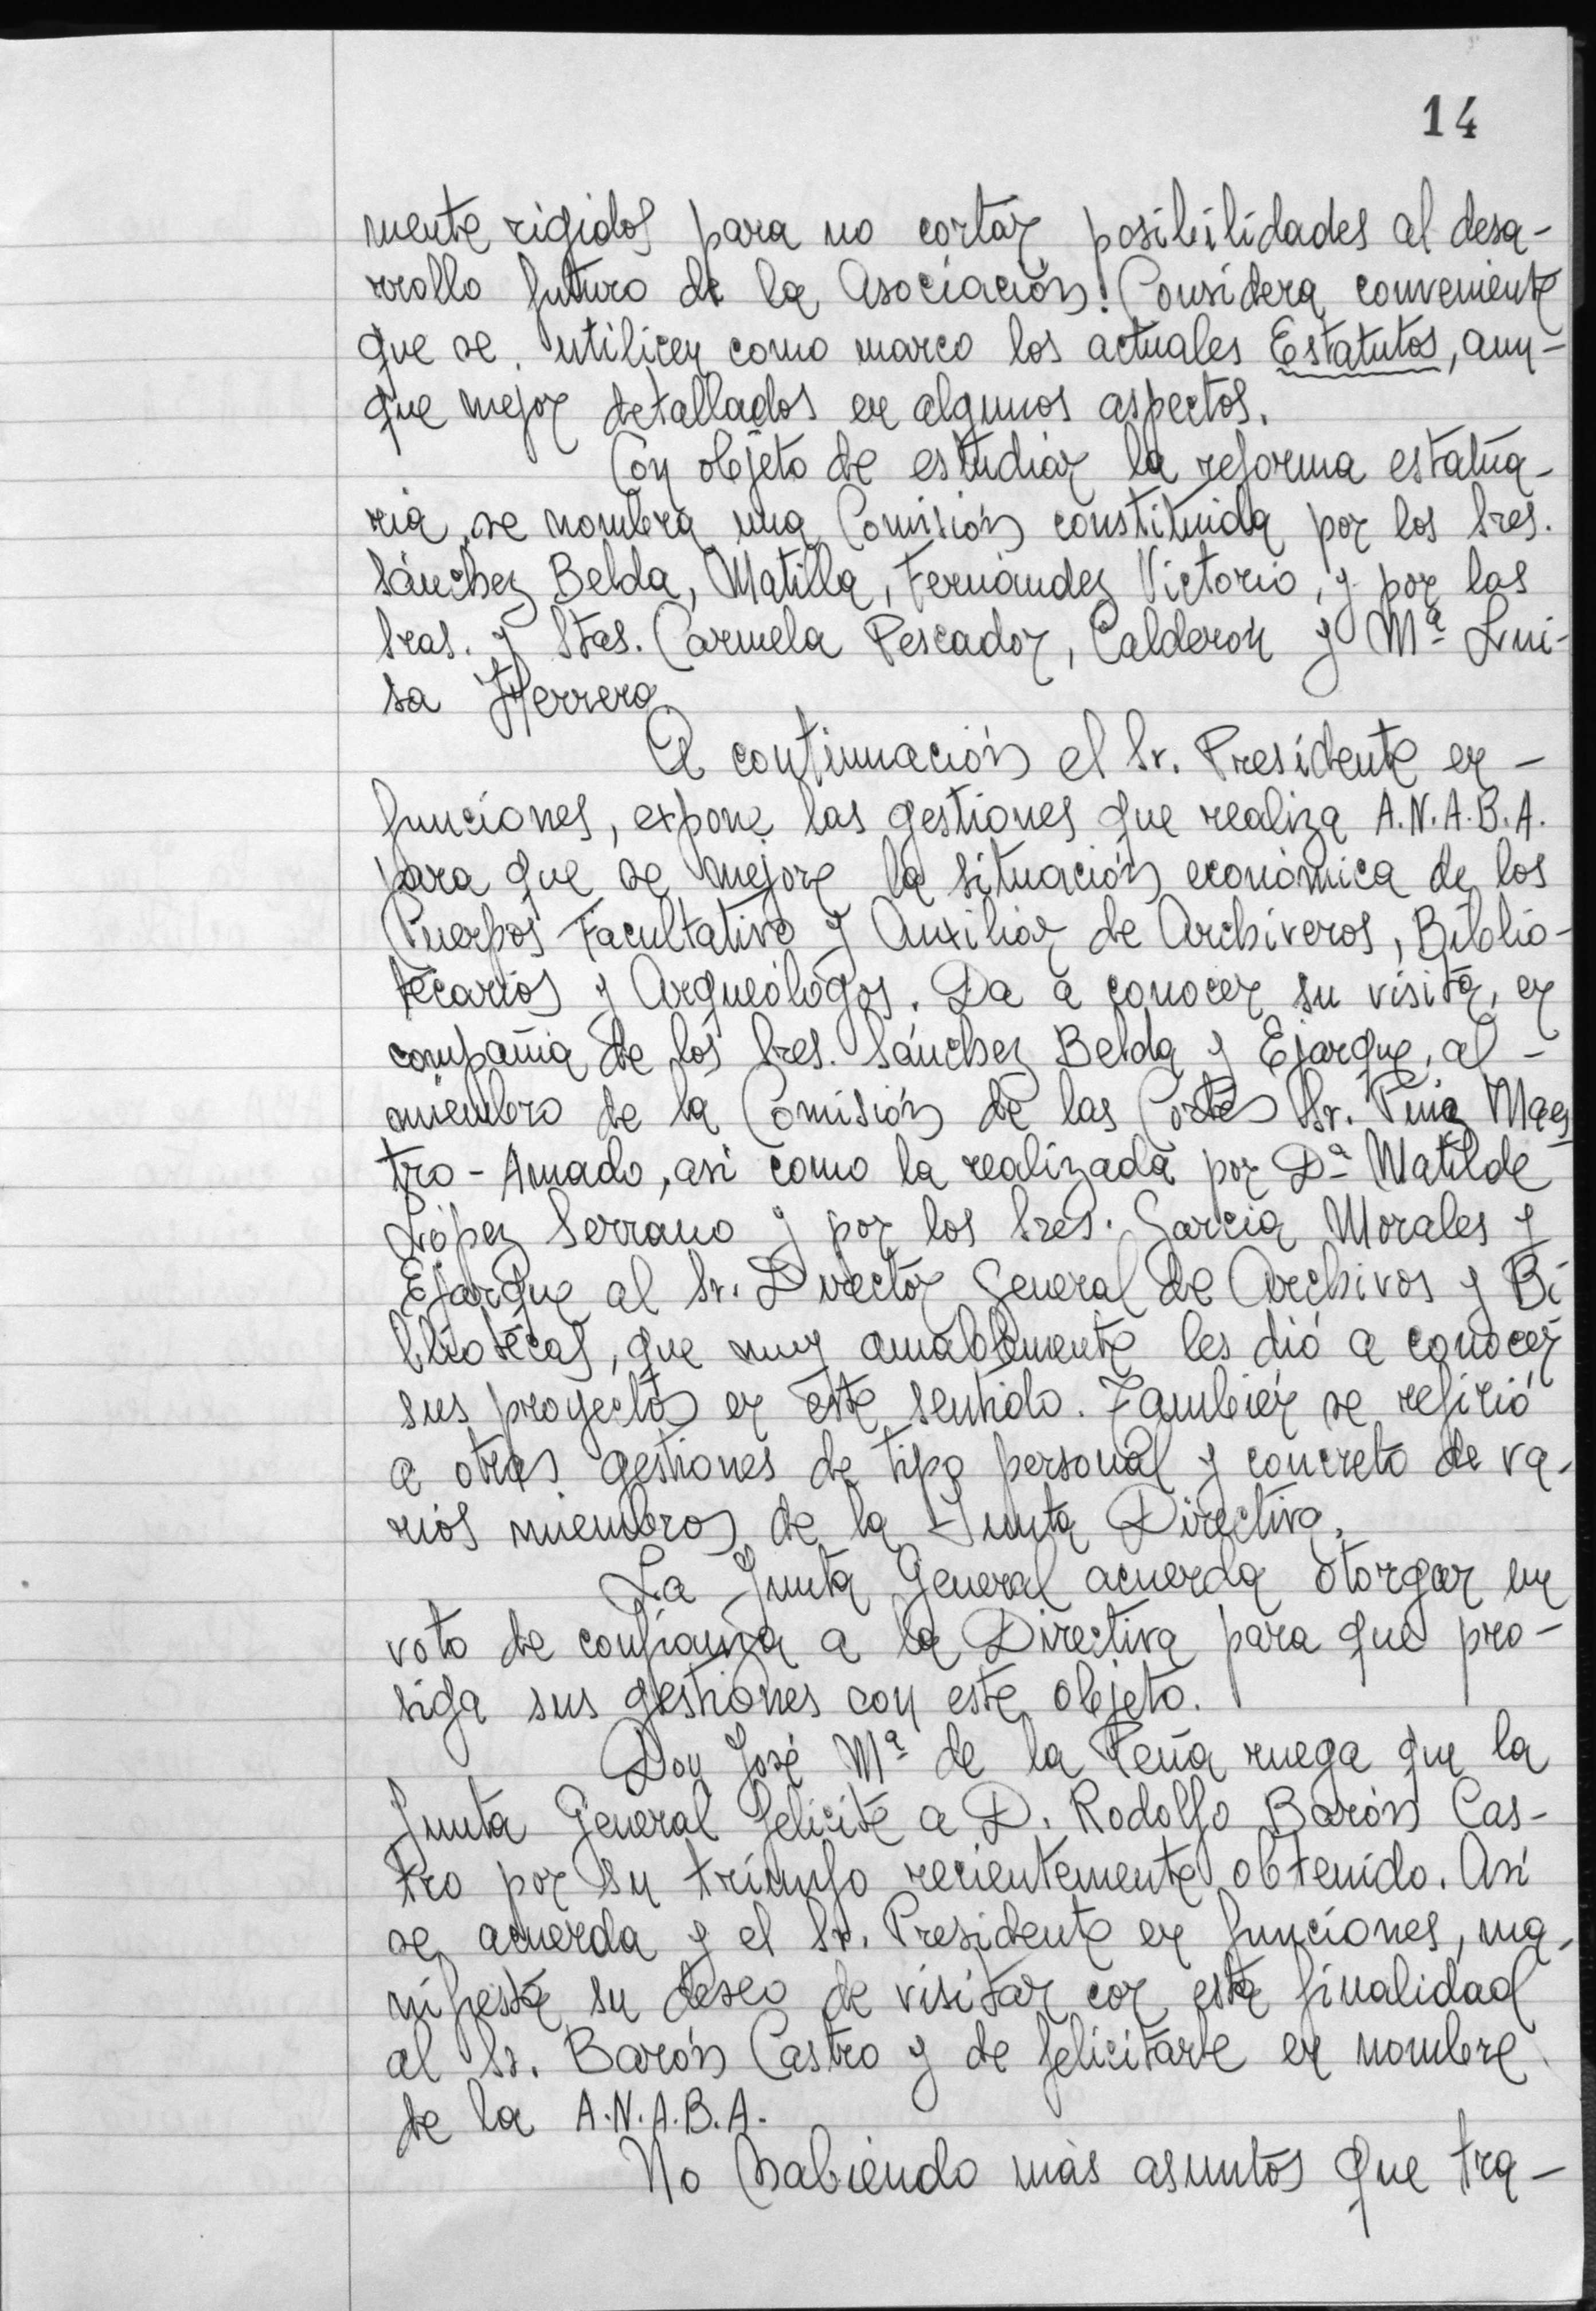 14
mente rigidos para no cortar posibilidades al desa-
rrollo futuro de la Asociación. Considera conveniente
que se utilicen como marco los actuales Estatutos, aun-
que mejor detallados en algunos aspectos.
Con objeto de estudiar la reforma estatua-
ria, se nombra una Comisión constituida por los Sres.
Sánchez Belda, Matilla, Fernández Victorio, y por las
Sras. y Stas. Carmela Pescador, Calderón y Mª Lui-
sa Herrera.
A continuación el Sr. Presidente en -
funciones, expone las gestiones que realiza A.N.A.B.A.
para que se mejore la situación económica de los
Cuerpos Facultativo y Auxiliar de Archiveros, Biblio-
tecarios y Arqueólogos. Da a conocer su visita, en
compañia de los Sres. Sánchez Belda y Ejarque, al -
miembro de la Comisión de las Cortes Sr. Maes
tro - Amado, asi como la realizada por Dª Matilde
López Serrano y por los Sres. García Morales y
Ejarque al Sr. Director General de Archivos y Bi
bliotecas, que muy amablemente les dió a conocer
sus proyectos en este sentido. También se refirió
a otras gestiones de tipo personal y concreto de va-
rios miembros de la Junta Directiva.
La Junta General acuerda otorgar un
voto de confianza a la Directiva para que pro-
siga sus gestiones con este objeto.
Don José Mª de la Peña ruega que la
Junta General felicite a D. Rodolfo Barón Cas-
tro por su triunfo recientemente obtenido. Asi
se acuerda y el Sr. Presidente en funciones, ma-
nifiesta su deseo de visitar con esta finalidad
al Sr. Barón Castro y de felicitarle en nombre
de la A.N.A.B.A.
No habiendo más asuntos que tra-